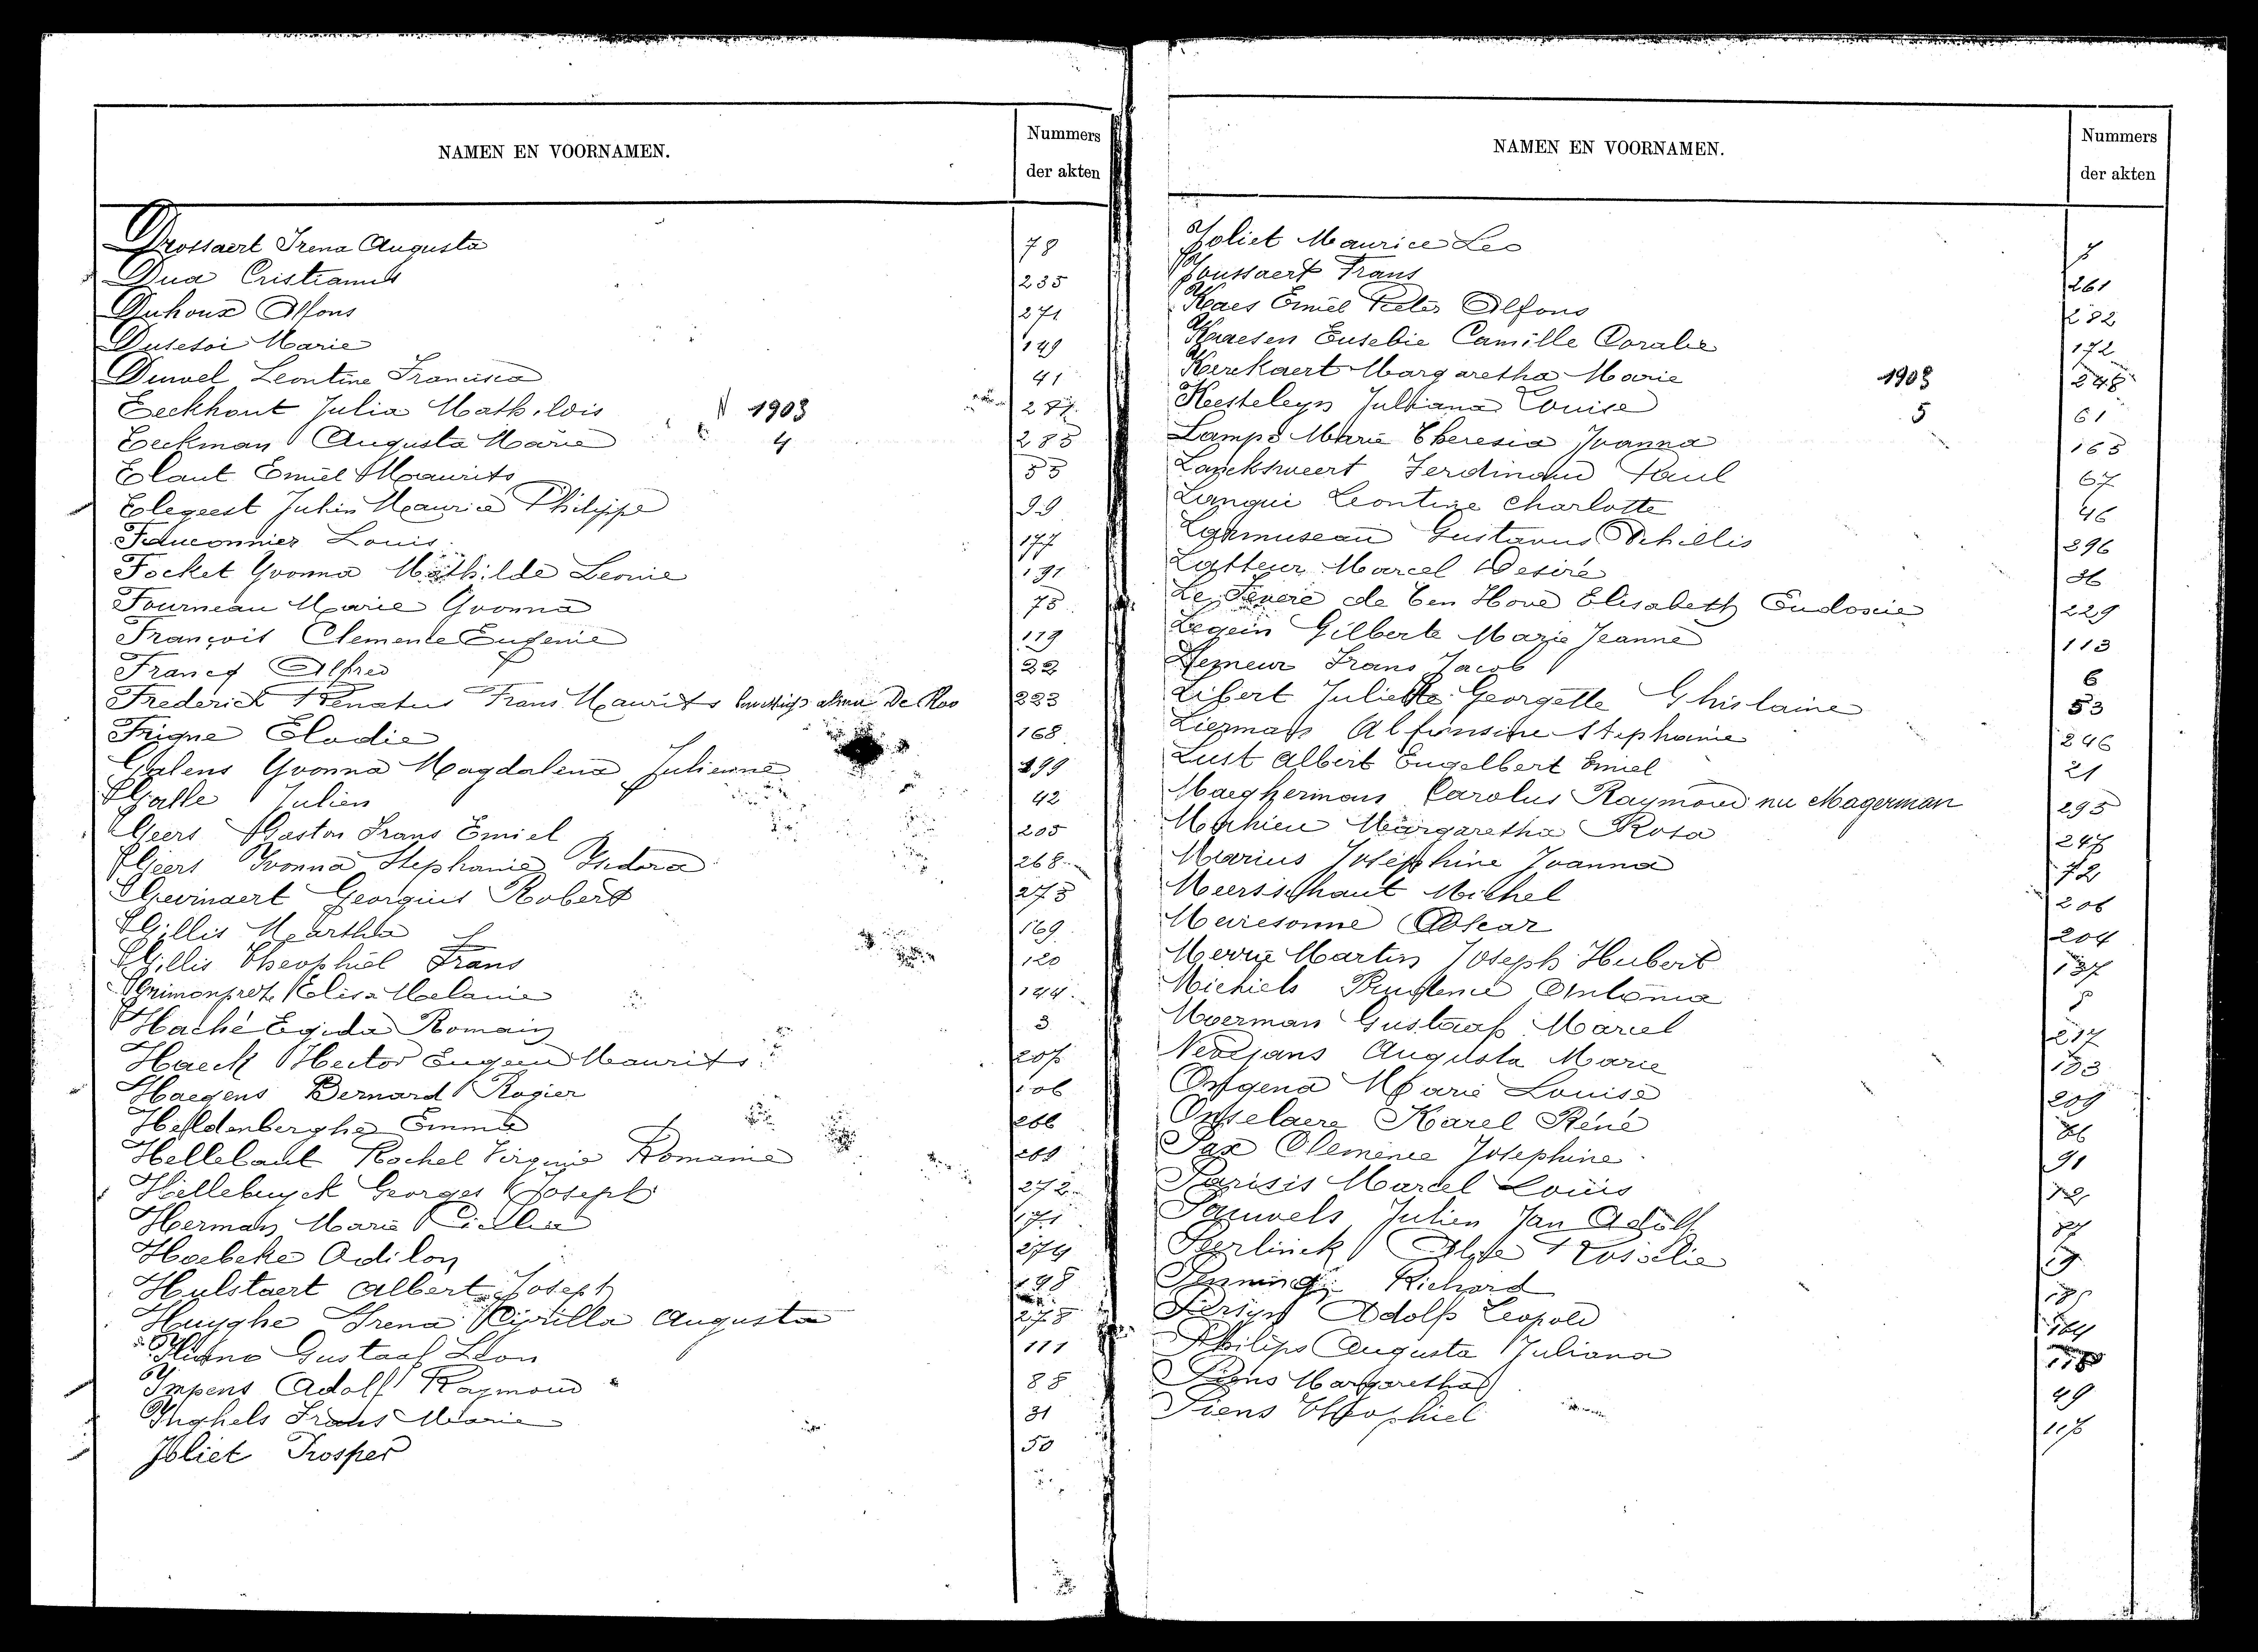 NAMEN EN VOORNAMEN.
Nummers
der akten
Drossaert Irena Augusta 78
Dua Cristianus 235
Duhoux Alfons 271
Dusesoi Marie 149
Duwel Leontine Francisca 41
Eeckhout Julia Math. Lois 287
N 1903
4
Eeckman Augusta Marie 285
Elaut Emiel Maurits 55
Elegeest Julien Maurice Philippe 99
Fauconnier Louis 177
Focket Yvonna Mathilde Leonie 191
Fourneau Marie Yvonna 75
François Clemente Eugenie 119
Francq Alfred 22
Frederick Renatus Frans Maurits De Roo 223
Frigne Elodie 168
Galens Yvonna Magdalena Julienne 199
Galle Julien 42
Geers Gaston Frans Emiel 205
Geers Yvonna Stephanie Isidora 268
Gevinaert Georgius Robert 273
Gillis Martha 169
Gillis Theophiel Frans 120
Grimonprez Elisa Melanie 144
Haché Egida Romain 3
Haeck Hector Eugeen Maurits 207
Haegens Bernard Rogier 106
Heldenberghe Emma 266
Hellebaut Rachel Virginie Romanie 269
Hellebuyck Georges Joseph 272
Herman Marie 171
Hoebeke Odilon 274
Hulstaert Albert Joseph 198
Huyghe Irena Cirilla Augusta 278
Gustaaf Leon 111
Impens Adolf Raymond 88
Inghels Frans Marie 31
Joliet Prosper 50
NAMEN EN VOORNAMEN.
Nummers
der akten
Joliet Maurice Leo 7
Joussaert Frans 261
Kaes Emiel Pieter Alfons 282
Karesen Eusebie Camille Coralie 172
Kerckaert Margaretha Marie 248
1903
5
Kesteleyn Julliana Louise 61
Lamps Marie Theresia Joanna 163
Lancksweert Ferdinand Paul 67
Langui Leontine Charlotte 46
Larmuseau Gustavus Achillis 296
Latteur Marcel Desiré 36
Le Fevere de Ten Hove Elisabeth Eudoxie 229
Legein Gilberte Marie Jeanne 113
Lemeur Frans Jacob 6
Libert Juliette Georgette Ghislaine 53
Liermans Alfonsine Stephanie 246
Lust Albert Engelbert Emiel 21
Maeghermans Carolus Raymond nu Magerman 295
Mahieu Margaretha Rosa 247
Marius Josephine Joanna 72
Meersschaut Michel 206
Meiresonne Oscar 204
Merrie Martin Joseph Hubert 137
Michiels Prudence Antonia
Moerman Gustaaf Marcel 217
Neodjans Augusta Marie 133
Ongena Marie Louise 209
Onselaere Karel Réné 26
Pax Clemence Josephine 91
Parisis Marcel Louis 12
Pauwels Julien Jan Adolf
Peerlinck
Richard
Persyn Adolf Leopold
Philips Augusta Juliana
Piens Margaretha 49
Piens Theophiel